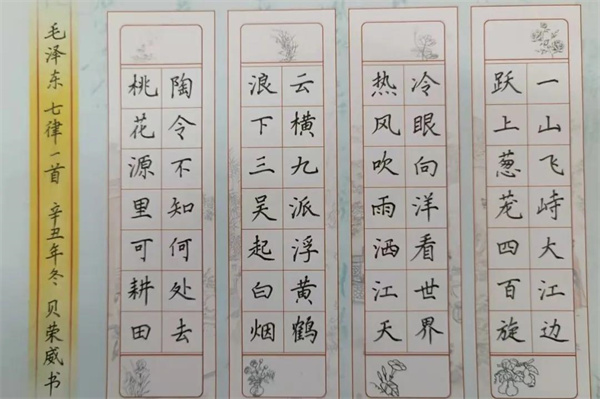 一山飞峙大江边
跃上葱茏四百旋
冷眼向洋看世界
热风吹雨洒江天
云横九派浮黄鹤
浪下三吴起白烟
陶令不知何处去
桃花源里可耕田
毛泽东 七律一首 辛丑年冬 贝荣威书